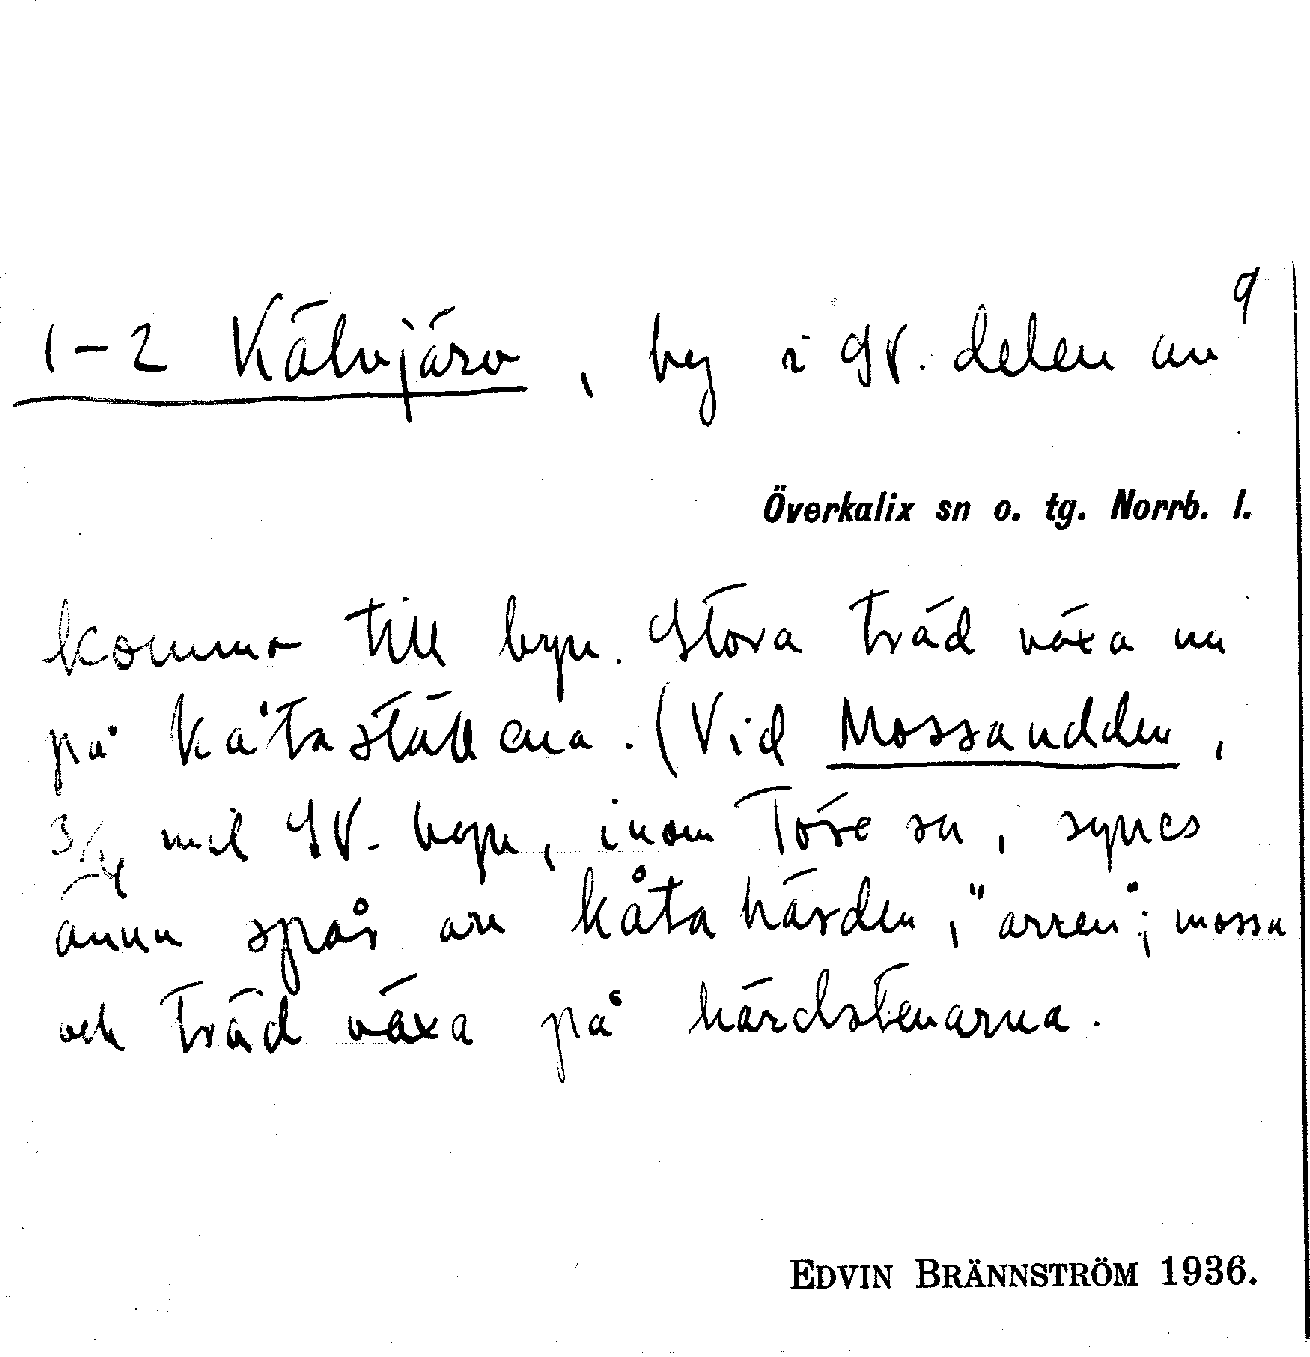 9
1-2 Kälvjärv, by i SV. delen av
Överkalix sn o. tg. Norrb. l.
komma till byn. Stora träd växa nu
på kåtaställena. (Vid Mossaudden,
3/4 mil SV. byn, inom Töre sn, synes
ännu spår av kåtahärden, "arren"; mossa
och träd växa på härdstenarna.
EDVIN BRÄNNSTRÖM 1936.